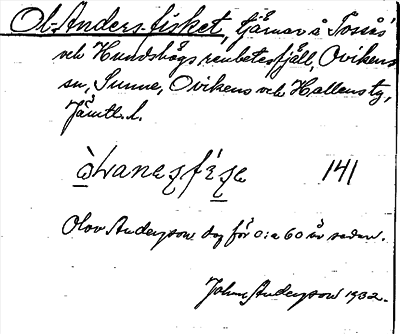 Ol-Anders-fisket, tjärnar å Tossås'
och Hundshögs renbetesfjäll, Ovikens
sn, Sunne, Ovikens och Hallens tg,
Jämtl. l.
141
Olov Andersson dog för c:a 60 år sedan.
Johan Andersson 1932.